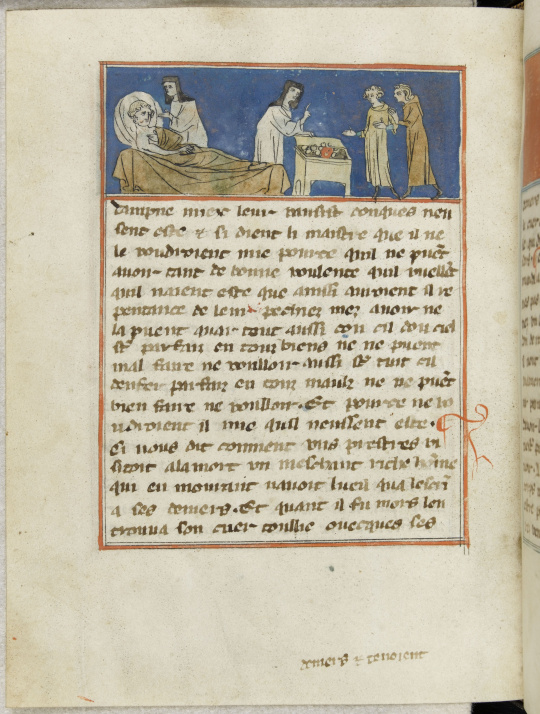 dampne miex leur vausist conques neu
sent este & si dient li maistre que il ne
le voudroient mie pource quil ne pueent
avoir tant de bonne voulente quil vuellent
quil naient este que ainssi auroient il re
pentance de leur pechiez mez avoir ne
la pueent quar tout aussi con cil dou ciel
st parfait en touz biens ne ne pueent
mal faire ne voulloir aussi st tuit cil
denfer parfait en touz maulz ne ne pueent
bien faire ne voulloir. Et pource ne vo
udroient il mie quil neussent este.
Ci nous dit comment uns prestres vi
sitoit a la mort un meschant riche homme
qui en mourant navoit lueil qua lescrin
a ses deniers. Et quant il fu mors len
trouva son cuer touillie ovecques ses
deniers & tenoient